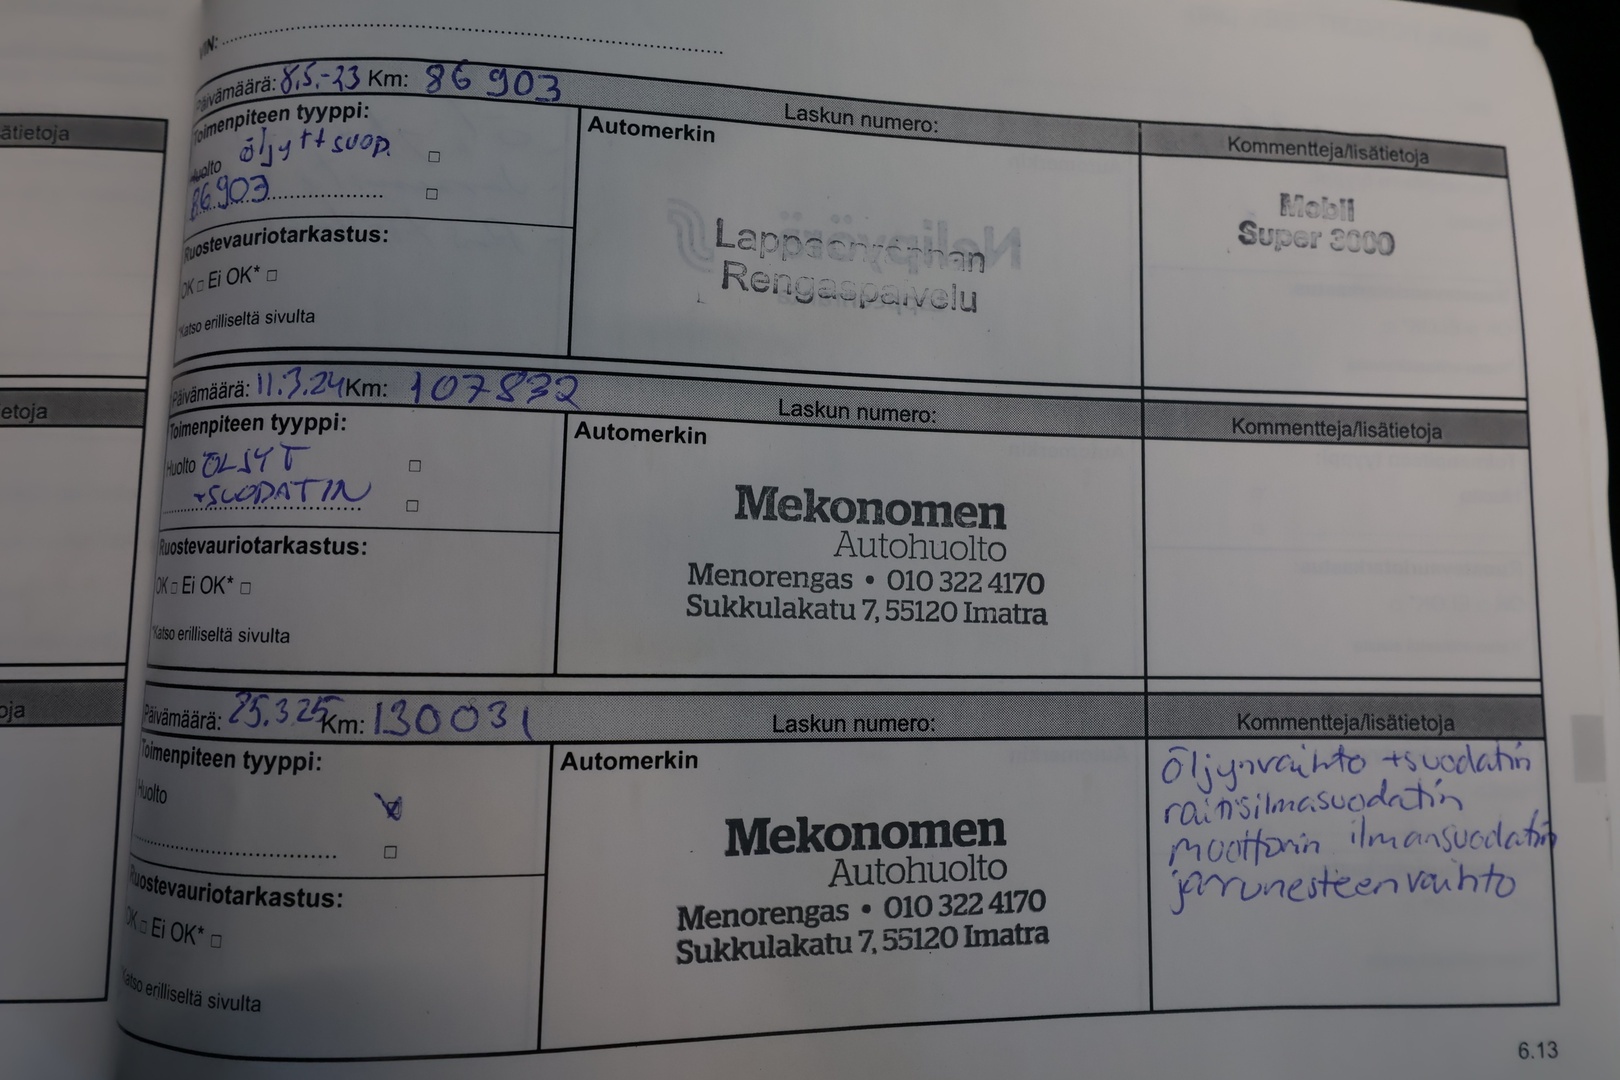 VIN:
Päivämäärä: 8.5.-23 Km: 86 903
Laskun numero:
Kommentteja/lisätietoja
Toimenpiteen tyyppi:
Huolto öljyt+suod.
86.903
Ruostevauriotarkastus:
OK □ Ei OK* □
*Katso erilliseltä sivulta
Automerkin
Lappeenrannan
Rengaspalvelu
Mobil
Super 3000
Päivämäärä: 11.3.24 Km: 107832
Laskun numero:
Kommentteja/lisätietoja
Toimenpiteen tyyppi:
Huolto ÖLJYT
+SUODATIN
Ruostevauriotarkastus:
OK □ Ei OK* □
*Katso erilliseltä sivulta
Automerkin
Mekonomen
Autohuolto
Menorengas • 010 322 4170
Sukkulakatu 7, 55120 Imatra
Päivämäärä: 25.3.25 Km: 130031
Laskun numero:
Kommentteja/lisätietoja
Toimenpiteen tyyppi:
Huolto
Ruostevauriotarkastus:
OK □ Ei OK* □
*Katso erilliseltä sivulta
Automerkin
Mekonomen
Autohuolto
Menorengas • 010 322 4170
Sukkulakatu 7, 55120 Imatra
öljynvaihto +suodatin
raitisilmasuodatin
moottorin ilmansuodatin
jarrunesteenvaihto
6.13
ätietoja
etoja
oja